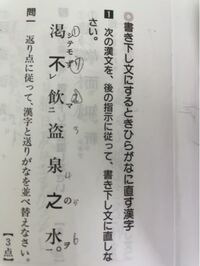 ◎書き下し文にするときひらがなに直す漢字
1 次の漢文を、後の指示に従って、書き下し文に直しな
さい。
渇シテモ不レ飲マ二盗泉之ノ水ヲ一。
問一 返り点に従って、漢字と送りがなを並べ替えなさい。
【3点】